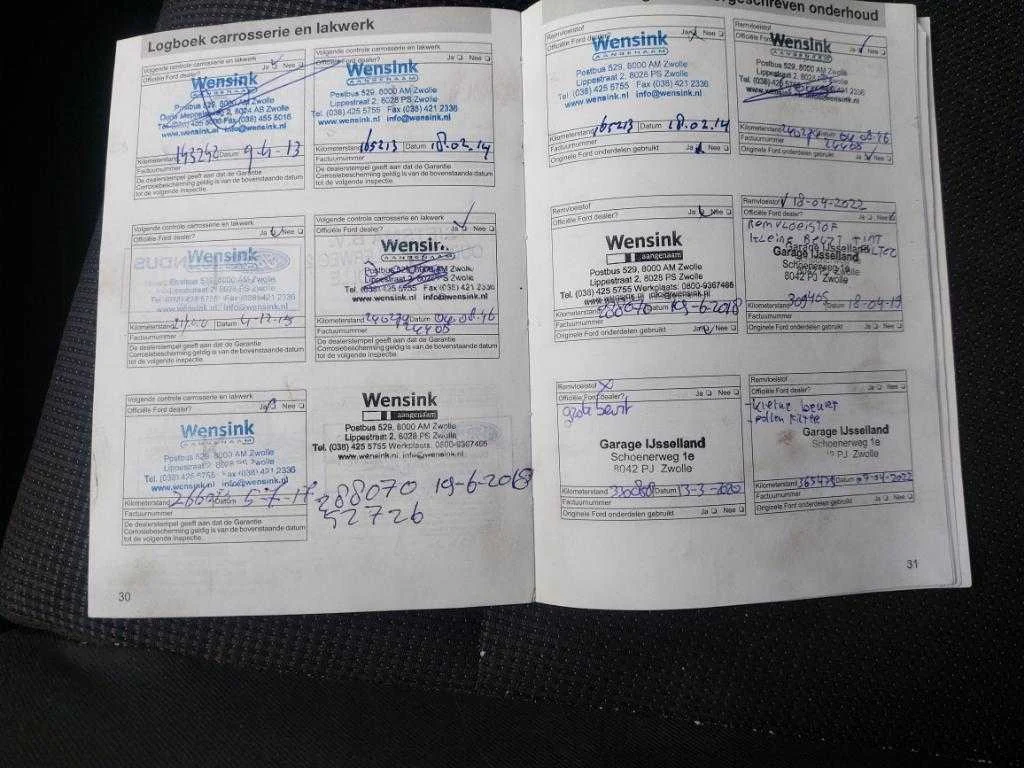 Logboek carrosserie en lakwerk
Volgende controle carrosserie en lakwerk
Officiële Ford dealer? Ja Nee
Wensink
AANGENAAM
Postbus 529, 8000 AM Zwolle
8024 AB Zwolle
Tel. (038) 455 Fax (038) 455 5016
www.wensink.nl info@wensink.nl
Kilometerstand 143242 Datum 9-4-13
Factuurnummer
De dealerstempel geeft aan dat de Garantie
Corrosiebescherming geldig is van de bovenstaande datum
tot de volgende inspectie.
Volgende controle carrosserie en lakwerk
Officiële Ford dealer? Ja Nee
Wensink
AANGENAAM
Postbus 529, 8000 AM Zwolle
Lippestraat 2, 8028 PS Zwolle
Tel. (038) 425 5755 Fax (038) 421 2336
www.wensink.nl info@wensink.nl
Kilometerstand 165213 Datum 18.02.14
Factuurnummer
De dealerstempel geeft aan dat de Garantie
Corrosiebescherming geldig is van de bovenstaande datum
tot de volgende inspectie.
Volgende controle carrosserie en lakwerk
Officiële Ford dealer? Ja Nee
Wensink
Postbus 529, 8000 AM Zwolle
Lippestraat 2, 8028 PS Zwolle
Tel. (038) 425 5755 Fax (038) 421 2336
www.wensink.nl info@wensink.nl
Kilometerstand Datum 4-12-15
Factuurnummer
De dealerstempel geeft aan dat de Garantie
Corrosiebescherming geldig is van de bovenstaande datum
tot de volgende inspectie.
Volgende controle carrosserie en lakwerk
Officiële Ford dealer? Ja Nee
Wensink
AANGENAAM
Postbus 529, 8000 AM Zwolle
Lippestraat 2, 8028 PS Zwolle
Tel. (038) 425 5755 Fax (038) 421 2336
www.wensink.nl info@wensink.nl
Kilometerstand 240274 Datum 04-08-16
Factuurnummer 24408
De dealerstempel geeft aan dat de Garantie
Corrosiebescherming geldig is van de bovenstaande datum
tot de volgende inspectie.
Volgende controle carrosserie en lakwerk
Officiële Ford dealer? Ja Nee
Wensink
AANGENAAM
Postbus 529, 8000 AM Zwolle
Lippestraat 2, 8028 PS Zwolle
Tel. (038) 425 5755 Fax (038) 421 2336
www.wensink.nl info@wensink.nl
Kilometerstand Datum 5-7-17
Factuurnummer
De dealerstempel geeft aan dat de Garantie
Corrosiebescherming geldig is van de bovenstaande datum
tot de volgende inspectie.
Wensink
aangenaam
Postbus 529, 8000 AM Zwolle
Lippestraat 2, 8028 PS Zwolle
Tel. (038) 425 5755 Werkplaats: 0800-9367465
www.wensink.nl info@wensink.nl
288070 19-6-2018
52726
30
geschreven onderhoud
Remvloeistof
Officiële Ford dealer? Ja Nee
Wensink
AANGENAAM
Postbus 529, 8000 AM Zwolle
Lippestraat 2, 8028 PS Zwolle
Tel. (038) 425 5755 Fax (038) 421 2336
www.wensink.nl info@wensink.nl
Kilometerstand 165213 Datum 18.02.14
Factuurnummer
Originele Ford onderdelen gebruikt Ja Nee
Remvloeistof
Officiële Ford dealer? Ja Nee
Wensink
AANGENAAM
Postbus 529, 8000 AM Zwolle
Lippestraat 2, 8028 PS Zwolle
Tel. (038) 425 421 2336
www.wensink.nl info@wensink.nl
Kilometerstand 240274 Datum 04-08-16
Factuurnummer 24408
Originele Ford onderdelen gebruikt Ja Nee
Remvloeistof
Officiële Ford dealer? Ja Nee
Wensink
aangenaam
Postbus 529, 8000 AM Zwolle
Lippestraat 2, 8028 PS Zwolle
Tel. (038) 425 5755 Werkplaats: 0800-9367465
www.wensink.nl info@wensink.nl
Kilometerstand 288070 Datum 19-6-2018
Factuurnummer
Originele Ford onderdelen gebruikt Ja Nee
Remvloeistof 18-04-2022
Officiële Ford dealer? Ja Nee
Remvloeistof
kleine
Garage IJsselland
Schoenerweg 1e
8042 PJ Zwolle
Kilometerstand 309405 Datum 18-04-19
Factuurnummer
Originele Ford onderdelen gebruikt Ja Nee
Remvloeistof
Officiële Ford dealer? Ja Nee
grote beurt
Garage IJsselland
Schoenerweg 1e
8042 PJ Zwolle
Kilometerstand Datum 13-3-2020
Factuurnummer
Originele Ford onderdelen gebruikt Ja Nee
Remvloeistof
Officiële Ford dealer? Ja Nee
- kleine beurt
- pollen filter
Garage IJsselland
Schoenerweg 1e
PJ Zwolle
Kilometerstand 365479 Datum 07-04-2022
Factuurnummer
Originele Ford onderdelen gebruikt Ja Nee
31